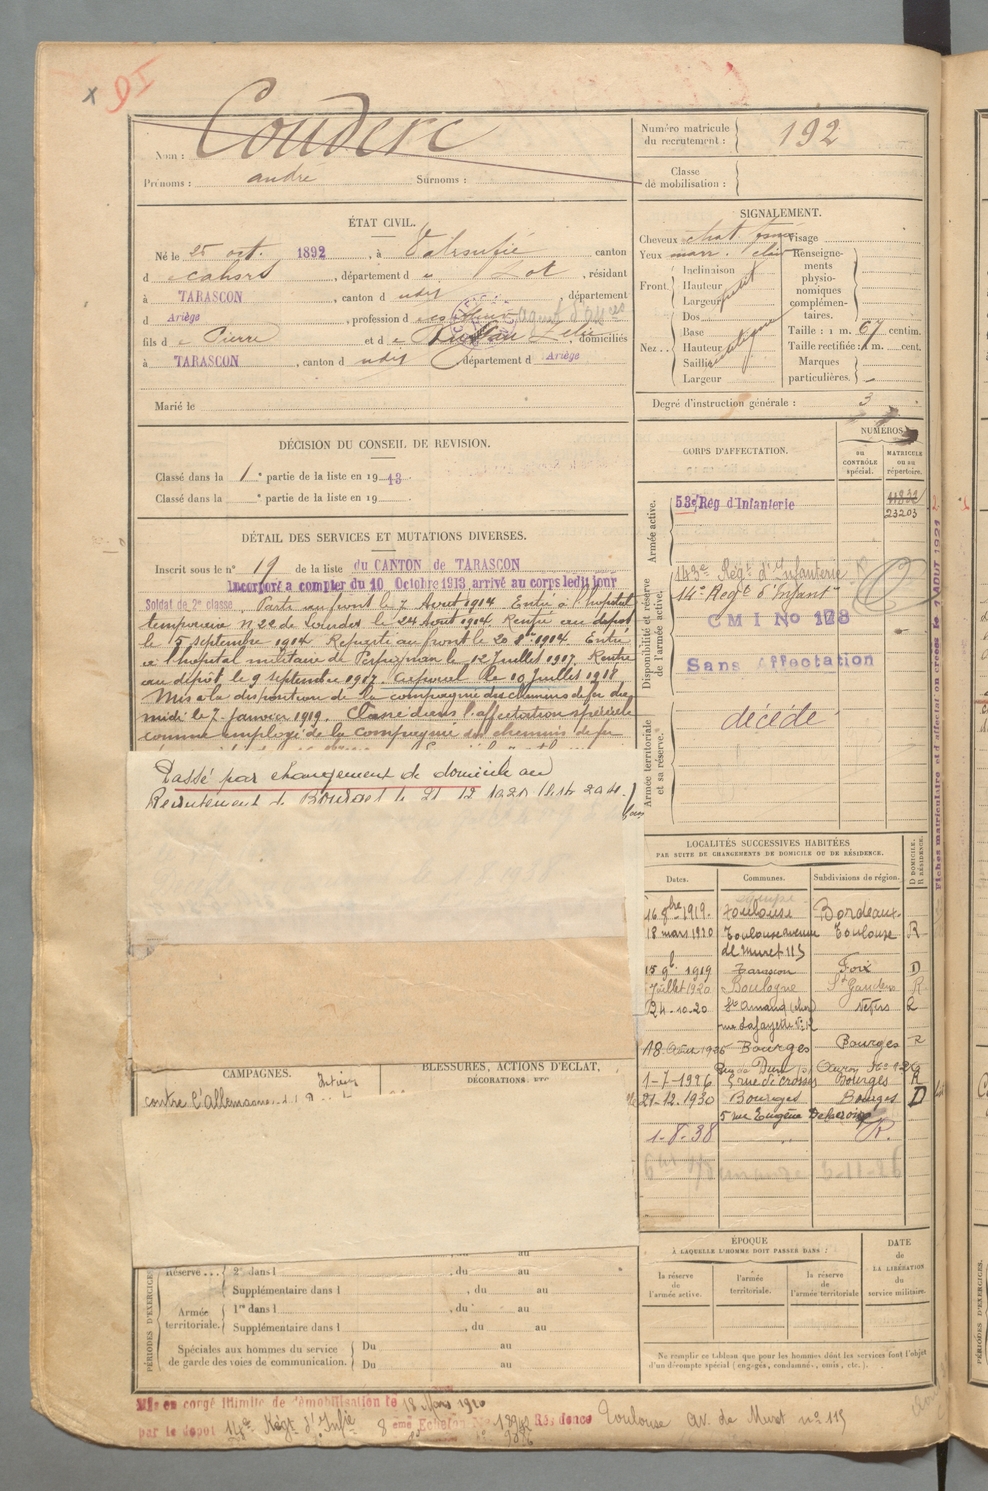 Nom : Couderc
Prénoms : andré Surnoms :
Numéro matricule du recrutement : 192
Classe de mobilisation :
ÉTAT CIVIL.
Né le 25 oct. 1892, à canton
d Cahors, département d Lot, résidant
à TARASCON, canton d udit, département
d Ariège, profession d
fils d Pierre et d domiciliés
à TARASCON, canton d udit département d Ariège
Marié le
SIGNALEMENT.
Cheveux chat. Visage
Yeux marr. clair Renseignements physionomiques complémentaires.
Front. Inclinaison
Hauteur
Largeur petit
Nez.. Dos
Base
Hauteur
Saillie
Largeur
Taille : 1 m. 67 centim.
Taille rectifiée : 1 m. cent.
Marques particulières.
Degré d'instruction générale : 3
DÉCISION DU CONSEIL DE REVISION.
Classé dans la 1e partie de la liste en 1913.
Classé dans la e partie de la liste en 19
DÉTAIL DES SERVICES ET MUTATIONS DIVERSES.
Inscrit sous le n° 19 de la liste du CANTON de TARASCON
Incorporé a compter du 10 Octobre 1913, arrivé au corps ledit jour
Soldat de 2e classe. Parti au front le 7 Aout 1914 Entré à l'hopital
temporaire N 22 de Lourdes le 24 Aout 1914. Rentré au dépot
le 15 septembre 1914 Reparti au front le 20 8bre 1914. Entré
à l'hopital militaire de Perpignan le 12 Juillet 1917. Rentré
au dépôt le 9 septembre 1917. Caporal le 10 Juillet 1918
Mis à la disposition de la compagnie des chemins de fer du
midi le 7 Janvier 1919. Classé dans l'affectation spéciale
comme employé de la Compagnie des chemins de fer
Passé par changement de domicile au
Recrutement de Bourges le 21 12 1930
CORPS D'AFFECTATION.
NUMÉROS
au CONTRÔLE spécial.
MATRICULE ou au répertoire.
Armée active.
53e Rég d'Infanterie
23203
Disponibilité et réserve de l'armée active.
143e Régt d'Infanterie
14e Regt d'Infantie
C M I No 178
Sans Affectation
Armée territoriale et sa réserve.
décédé
Fiches matriculaire et d'affectation créées le 1 AOUT 1921
LOCALITÉS SUCCESSIVES HABITÉES
PAR SUITE DE CHANGEMENTS DE DOMICILE OU DE RÉSIDENCE.
Dates. Communes. Subdivisions de région. D DOMICILE. R RÉSIDENCE.
16 8bre 1919. Toulouse Bordeaux
18 mars 1920 Toulouse avenue Toulouse R
de Muret 115
15 9b 1919 Tarascon Foix D
Juillet 1920 Boulogne St Gaudens R
24-10-20 St Amand (cher) Nevers R
rue Lafayette
18 Août 1925 Bourges Bourges R
1-7-1926 Bourges R
21-12.1930 Bourges Bourges D
5 rue Eugène Delacroix
1-8-38 R.
CAMPAGNES.
contre l'allemagne
BLESSURES, ACTIONS D'ÉCLAT,
DÉCORATIONS, ETC
PÉRIODES D'EXERCICES
Réserve... 2e dans l , du au
Supplémentaire dans l , du au
Armée territoriale. 1re dans l , du au
Supplémentaire dans l , du au
Spéciales aux hommes du service de garde des voies de communication. Du au
Du au
ÉPOQUE
À LAQUELLE L'HOMME DOIT PASSER DANS :
la réserve de l'armée active.
l'armée territoriale.
la réserve de l'armée territoriale
DATE de LA LIBÉRATION du service militaire.
Ne remplir ce tableau que pour les hommes dont les services font l'objet
d'un décompte spécial (engagés, condamnés, omis, etc.).
Mis en congé illimité de démobilisation le 18 Mars 1920
par le depot 14e Régt d'Infie 8 eme Echelon No Résidence Toulouse av. de Muret no 115